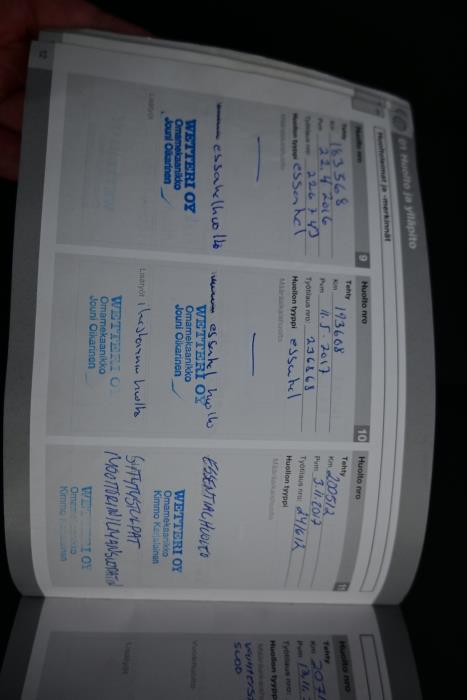 01 Huolto ja ylläpito
Huoltoleimat ja -merkinnät
Huolto nro 9
Tehty
Km 183568
Pvm 22.4.2016
Työtilaus nro: 226743
Huollon tyyppi essential
Määräaikaishuolto
essentialhuolto
WETTERI OY
Omamekaanikko
Jouni Oikarinen
Lisätyöt
Huolto nro 10
Tehty
Km 193608
Pvm 11.5.2017
Työtilaus nro: 236868
Huollon tyyppi essential
Määräaikaishuolto
essential huolto
WETTERI OY
Omamekaanikko
Jouni Oikarinen
Lisätyöt huolto
WETTERI OY
Omamekaanikko
Jouni Oikarinen
Huolto nro 11
Tehty
Km 200512
Pvm 3.11.2017
Työtilaus nro: 241612
Huollon tyyppi
Määräaikaishuolto
ESSENTIALHUOLTO
WETTERI OY
Omamekaanikko
Kimmo Karjalainen
SYTYTYSTULPAT
MOOTTORINILMANSUODATIN
WETTERI OY
Omamekaanikko
Kimmo Karjalainen
12
Huolto nro
Tehty
Km 207
Pvm
Työtilaus nro:
Huollon tyyppi
Määräaikaishuolto
Vuosihuolto
Lisätyöt